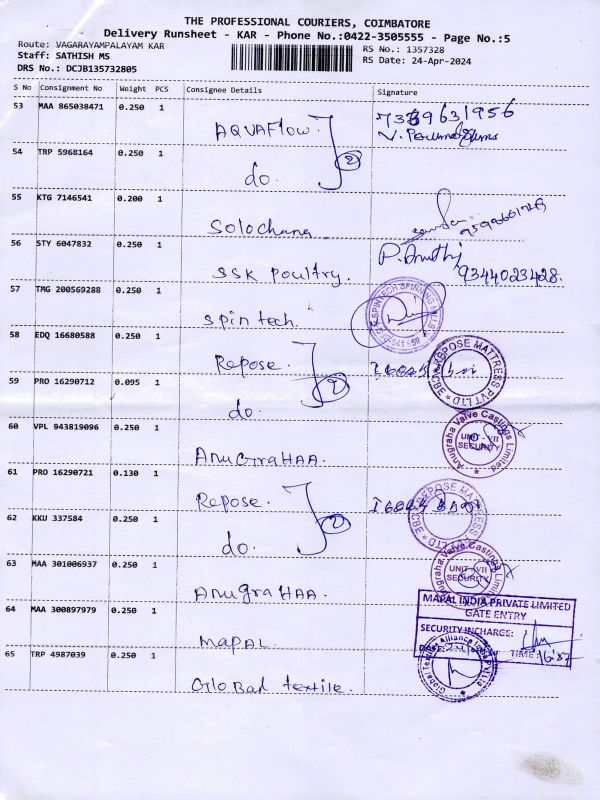 THE PROFESSIONAL COURIERS, COIMBATORE
Delivery Runsheet - KAR - Phone No.:0422-3505555 - Page No.:5
Route: VAGARAYAMPALAYAM KAR
Staff: SATHISH MS
DRS No.: DCJB135732805
RS No.: 1357328
RS Date: 24-Apr-2024
S No Consignment No Weight PCS Consignee Details Signature
53 MAA 865038471 0.250 1 AQUAFlow. 2
54 TRP 5968164 0.250 1 do.
55 KTG 7146541 0.200 1 Solochana
56 STY 6047832 0.250 1 SSK poultry. 9344023428.
57 TMG 200569288 0.250 1 spintech.
SPINTECH SPINNING MILLS
58 EDQ 16680588 0.250 1 Repose. 2
REPOSE MATTRESS PVT LTD
59 PRO 16290712 0.095 1 do.
60 VPL 943819096 0.250 1 AnuGraHAA.
Anugraha Valve Castings Limited
UNIT - VII
SECURITY
61 PRO 16290721 0.130 1 Repose. 2
REPOSE MATTRESS PVT LTD
62 KKU 337584 0.250 1 do.
63 MAA 301006937 0.250 1 AnugraHAA.
Anugraha Valve Castings Limited
UNIT - VII
SECURITY
64 MAA 300897979 0.250 1 MAPAL
MAPAL INDIA PRIVATE LIMITED
GATE ENTRY
SECURITY INCHARGE:
DATE: TIME:
65 TRP 4987039 0.250 1 Global textile.